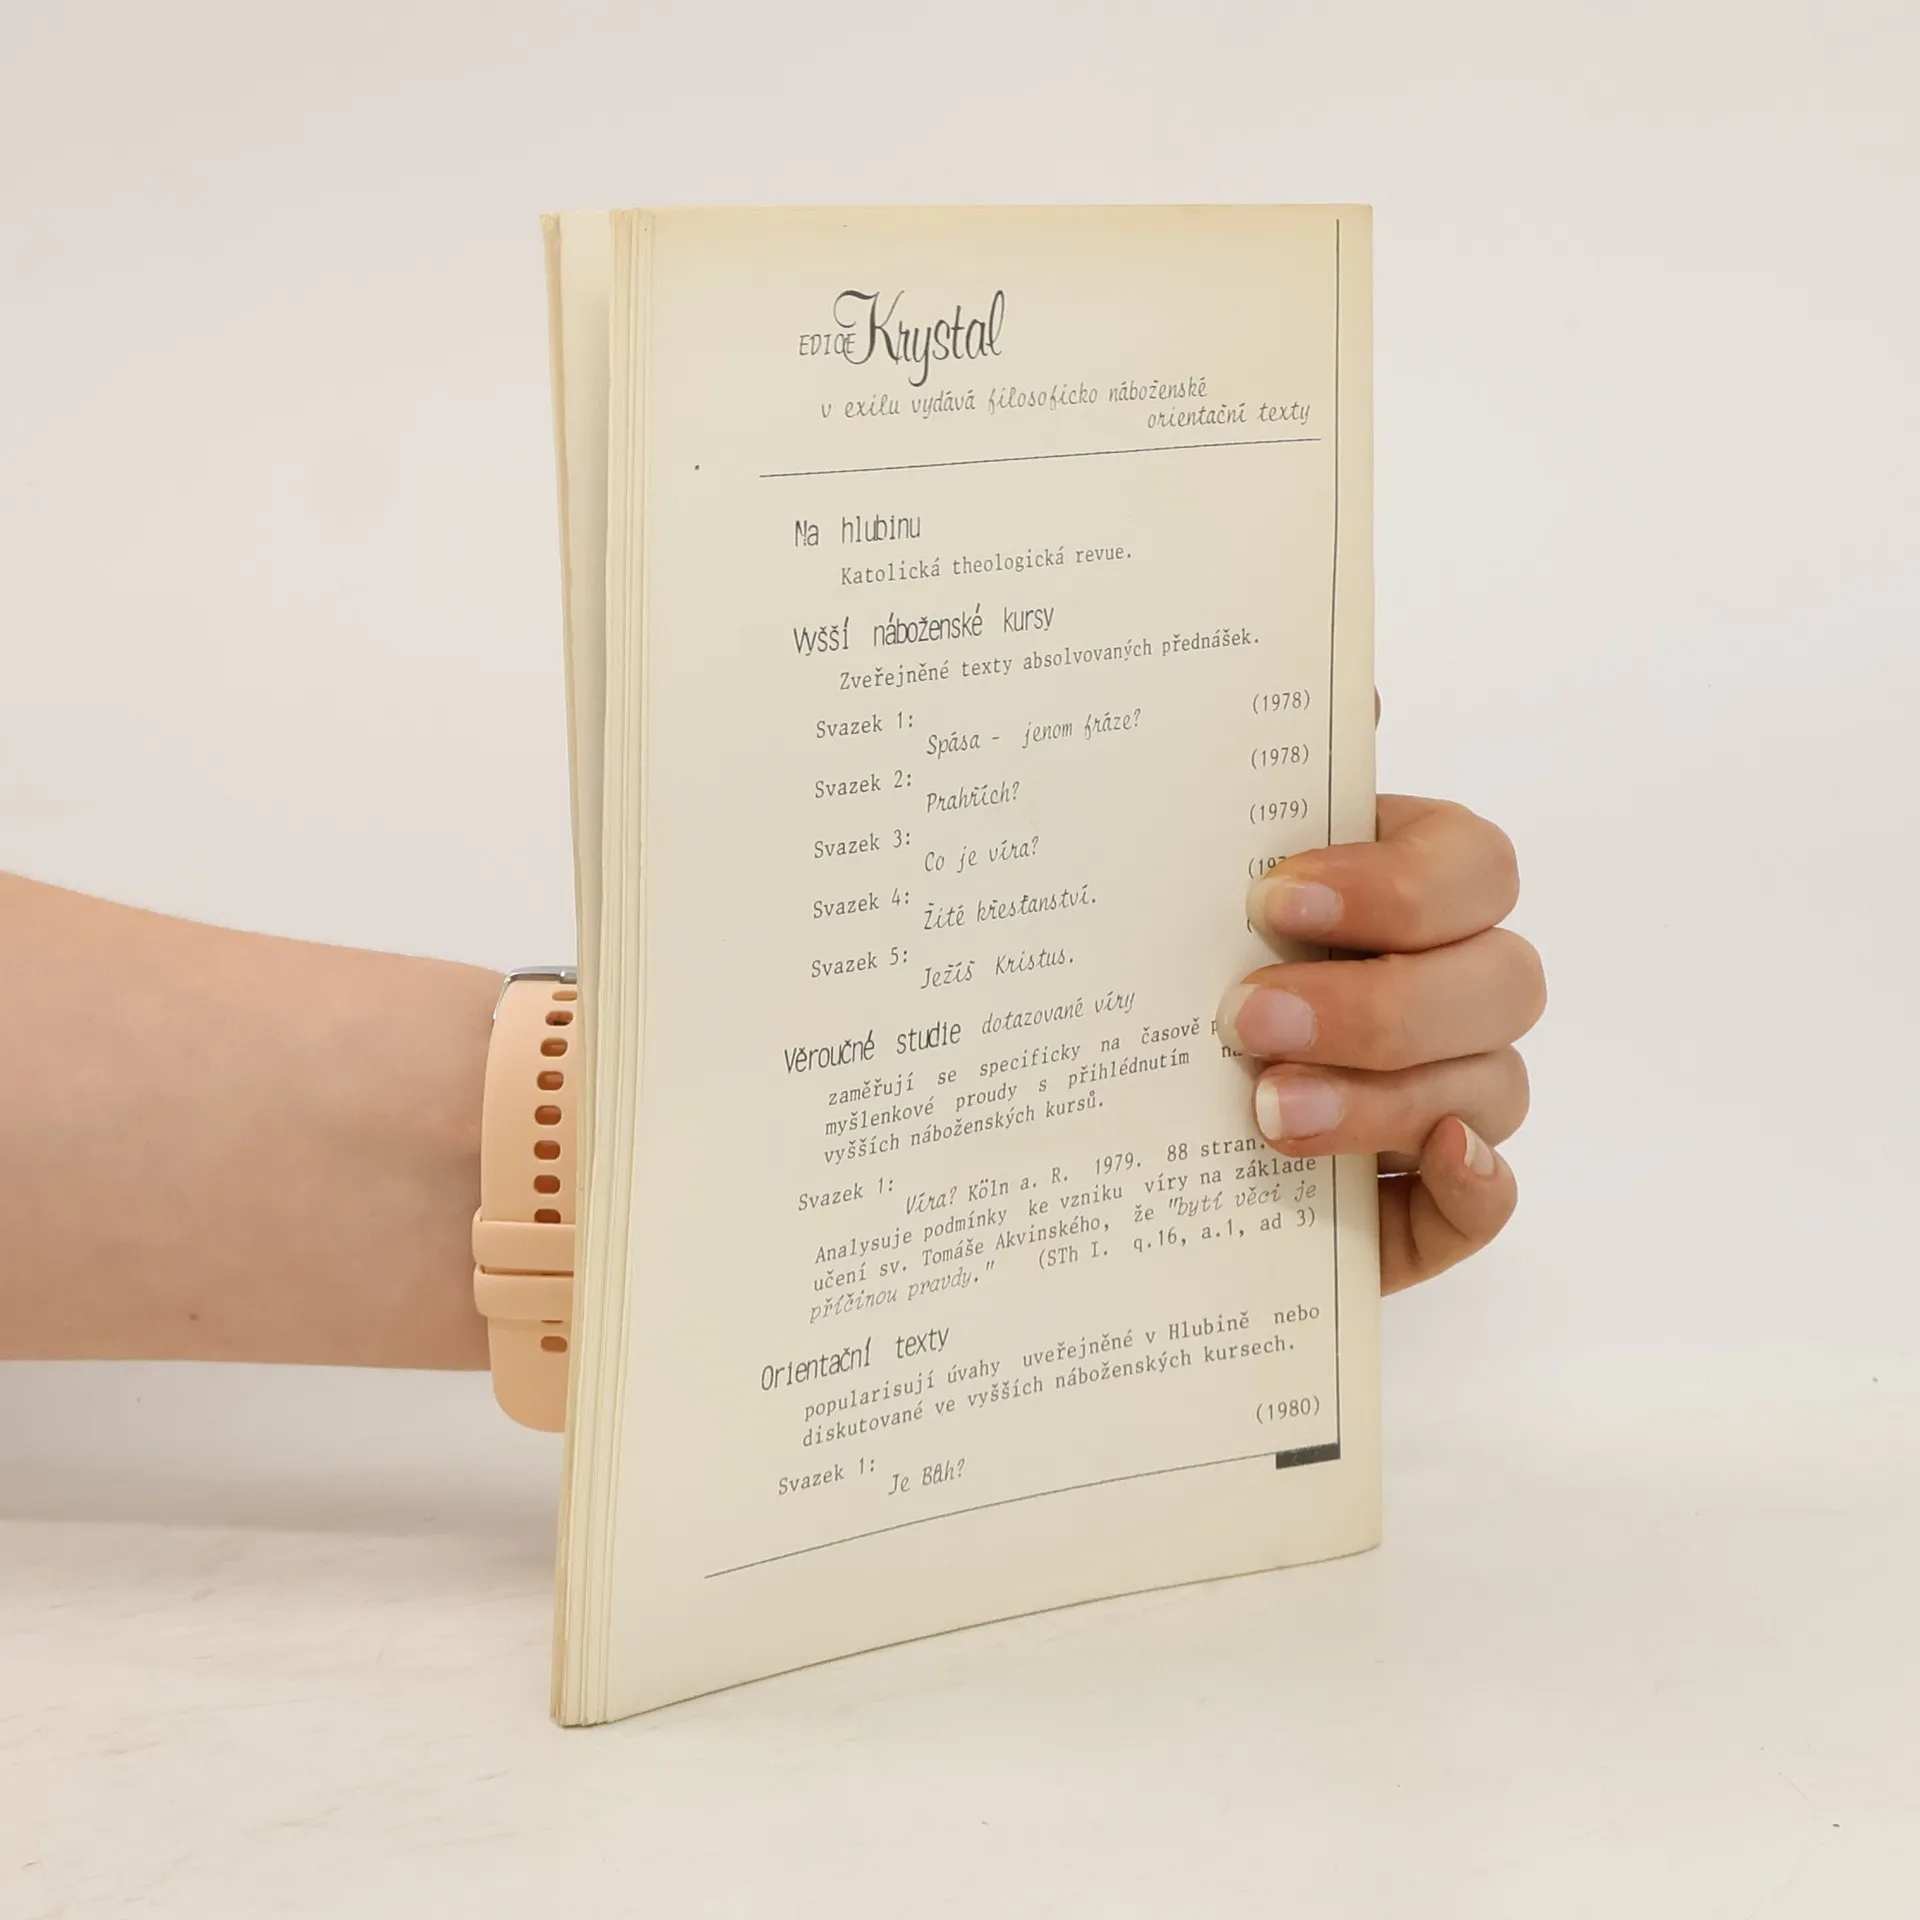 EDICE Krystal
v exilu vydává filosoficko náboženské
orientační texty
Na hlubinu
Katolická theologická revue.
Vyšší náboženské kursy
Zveřejněné texty absolvovaných přednášek.
Svazek 1: Spása - jenom fráze? (1978)
Svazek 2: Prahřích? (1978)
Svazek 3: Co je víra? (1979)
Svazek 4: Žité křesťanství.
Svazek 5: Ježíš Kristus.
Věroučné studie dotazované víry
zaměřují se specificky na časově
myšlenkové proudy s přihlédnutím
vyšších náboženských kursů.
Svazek 1: Víra? Köln a. R. 1979. 88 stran.
Analysuje podmínky ke vzniku víry na základě
učení sv. Tomáše Akvinského, že "bytí věci je
příčinou pravdy." (STh I. q.16, a.1, ad 3)
Orientační texty
popularisují úvahy uveřejněné v Hlubině nebo
diskutované ve vyšších náboženských kursech.
Svazek 1: Je Bůh? (1980)